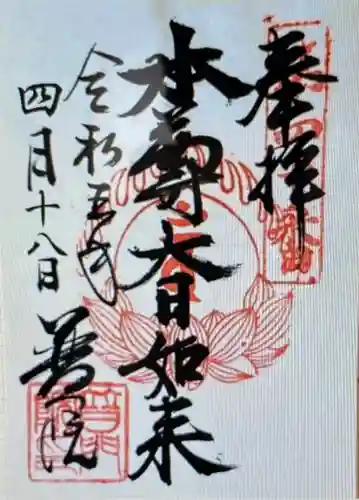 奉拝
本尊大日如来
令和五年
四月十八日
普門院